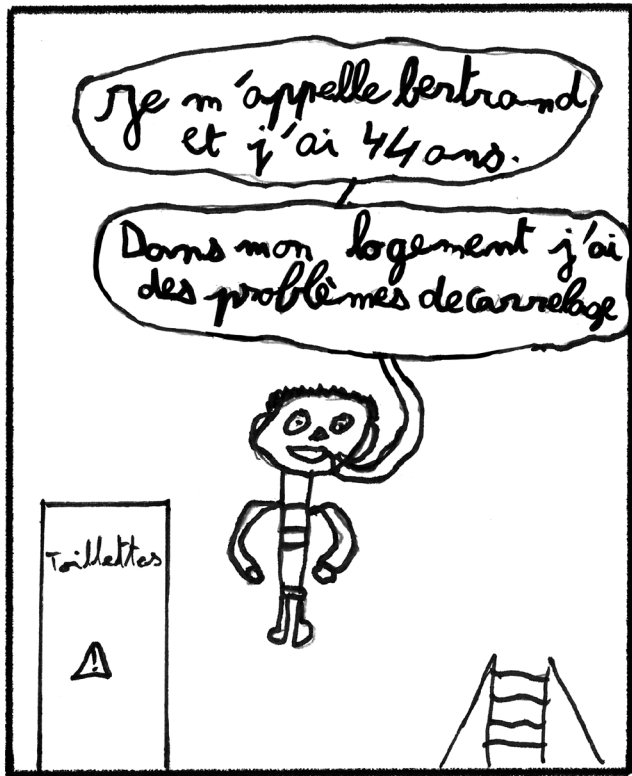 Je m'appelle bertrand
et j'ai 44 ans.
Dans mon logement j'ai
des problèmes de carrelage
Toillettes
!